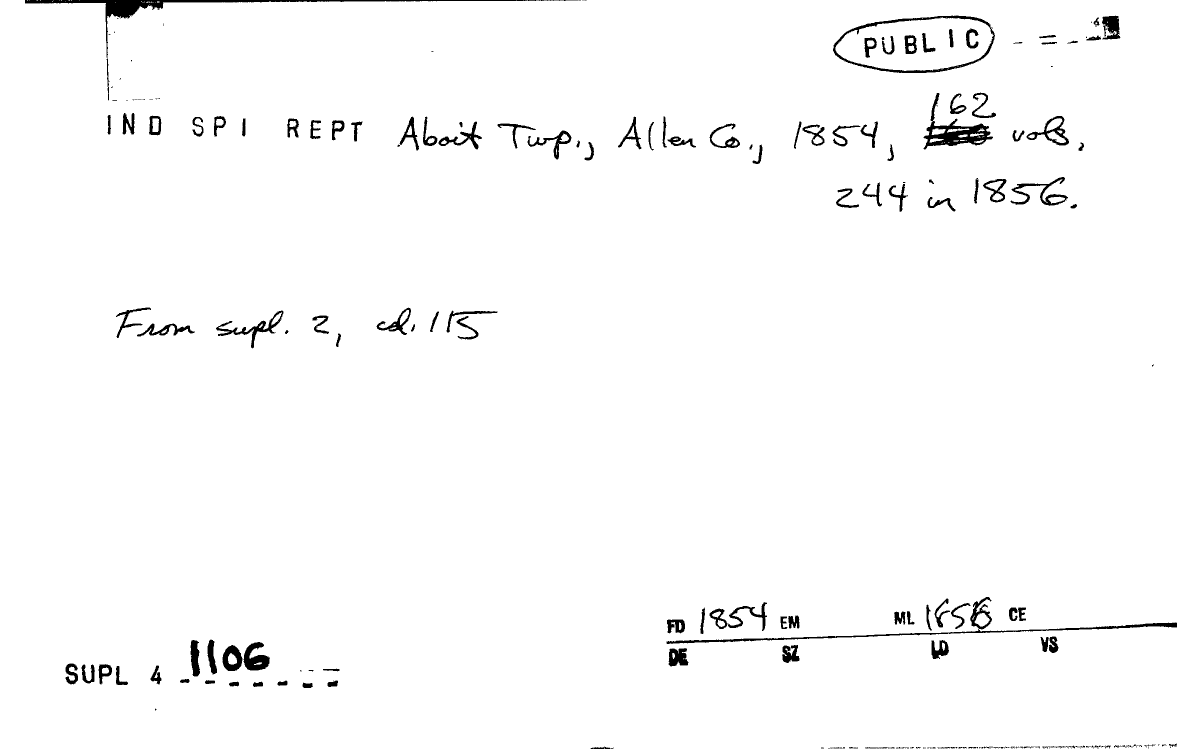 PUBLIC
IND SPI REPT Aboit Twp., Allen Co., 1854, 162 vols.
244 in 1856.
From supl. 2, col. 115
FD 1854 EM ML 1856 CE
DE SZ LD VS
SUPL 4 1106